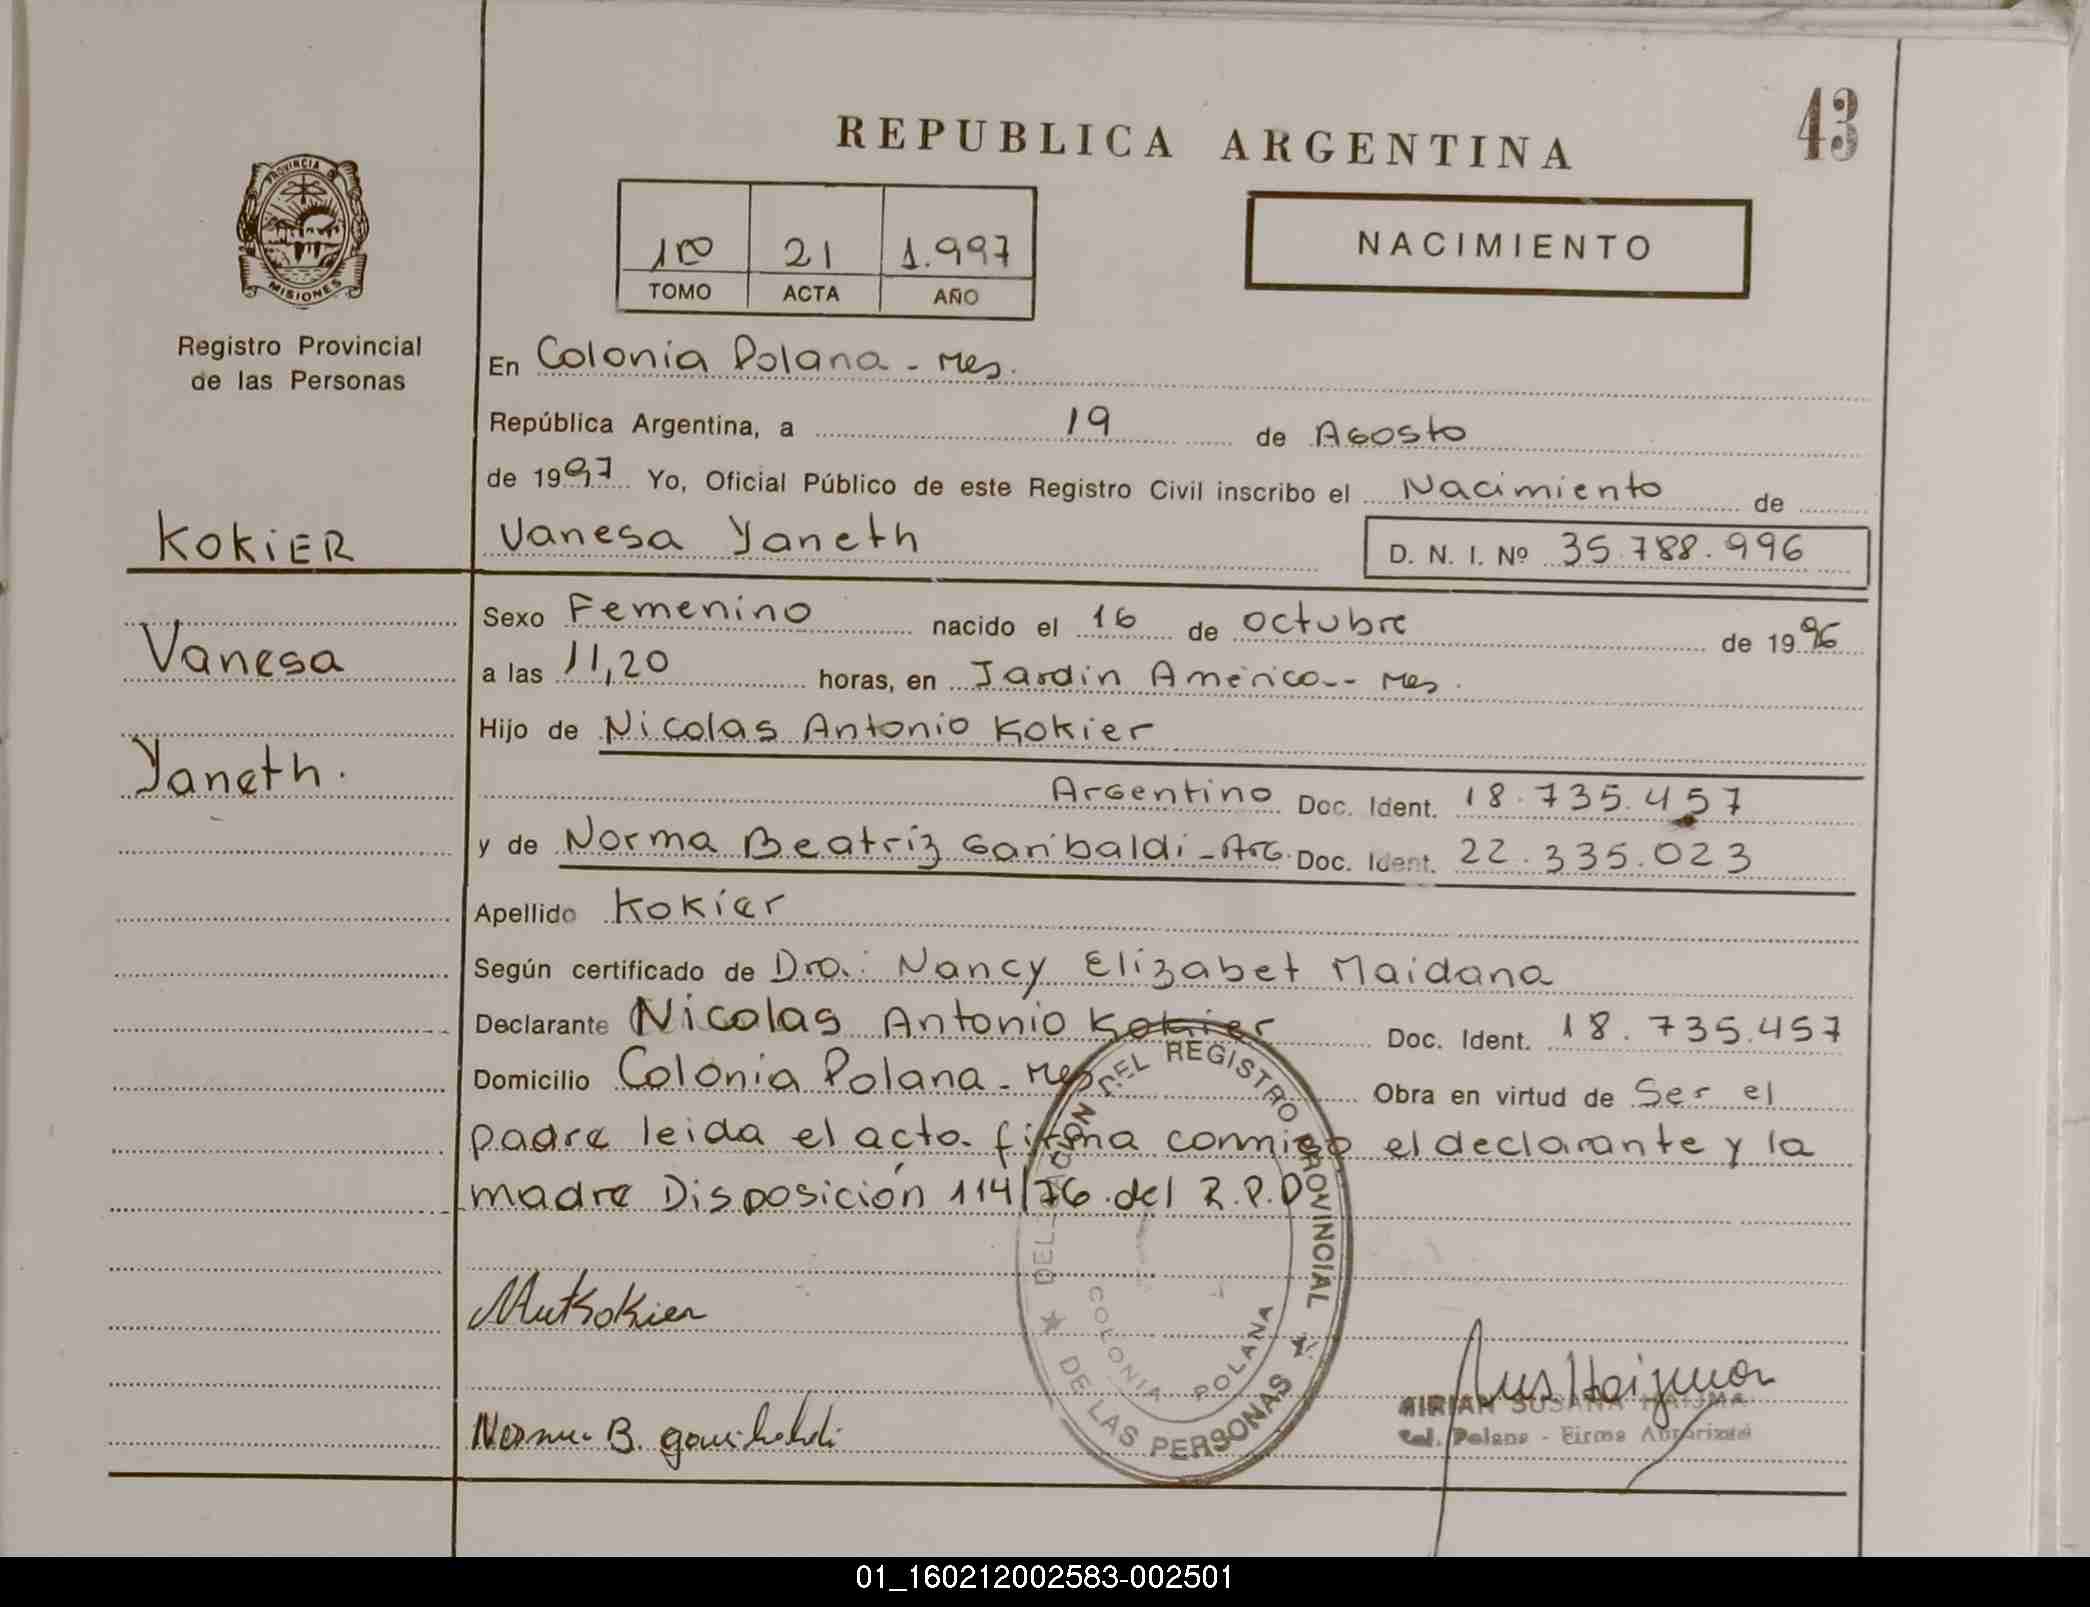 43
REPUBLICA ARGENTINA
PROVINCIA DE
MISIONES
100 21 1.997
TOMO ACTA AÑO
NACIMIENTO
Registro Provincial
de las Personas
En Colonia Polana - Mes.
República Argentina, a 19 de Agosto
de 1997 Yo, Oficial Público de este Registro Civil inscribo el Nacimiento de
KOKIER
Vanesa Yaneth D. N. I. Nº 35.788.996
Vanesa
Yaneth.
Sexo Femenino nacido el 16 de octubre de 1996
a las 11,20 horas, en Jardin América -- Mes.
Hijo de Nicolas Antonio Kokier
Argentino Doc. Ident. 18.735.457
y de Norma Beatriz Garibaldi - Arg. Doc. Ident. 22.335.023
Apellido Kokier
Según certificado de Dra.: Nancy Elizabet Maidana
Declarante Nicolas Antonio Kokier Doc. Ident. 18.735.457
Domicilio Colonia Polana - Mes Obra en virtud de Ser el
padre leida el acta. firma conmigo el declarante y la
madre Disposición 114/76 del R.P.P
DEL REGISTRO PROVINCIAL
DE LAS PERSONAS
COLONIA POLANA
Norma B. garibaldi
MIRIAN SUSANA HAIJMA
Col. Polana - Firma Autorizada
01_160212002583-002501